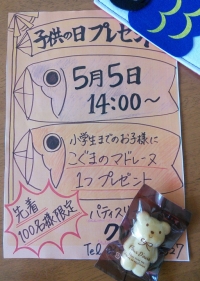 子供の日プレゼント
5月5日
14:00〜
小学生までのお子様に
こぐまのマドレーヌ
1つプレゼント
先着
100名様限定
パティスリ
Tel
27